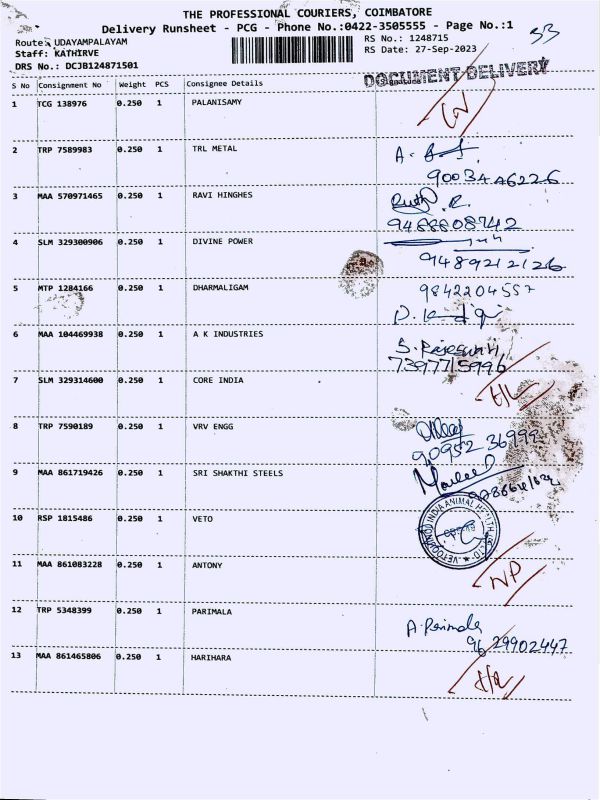 THE PROFESSIONAL COURIERS, COIMBATORE
Delivery Runsheet - PCG - Phone No.:0422-3505555 - Page No.:1
Route: UDAYAMPALAYAM
Staff: KATHIRVE
DRS No.: DCJB124871501
RS No.: 1248715
RS Date: 27-Sep-2023
33
DOCUMENT DELIVERY
S No Consignment No Weight PCS Consignee Details Signature
1 TCG 138976 0.250 1 PALANISAMY
2 TRP 7589983 0.250 1 TRL METAL
9003446226
3 MAA 570971465 0.250 1 RAVI HINGHES
9488808742
4 SLM 329300906 0.250 1 DIVINE POWER
9489212126
5 MTP 1284166 0.250 1 DHARMALIGAM 9842204557
6 MAA 104469938 0.250 1 A K INDUSTRIES S. Rajeswari
7397715996
7 SLM 329314600 0.250 1 CORE INDIA
8 TRP 7590189 0.250 1 VRV ENGG
90952 36999
9 MAA 861719426 0.250 1 SRI SHAKTHI STEELS
10 RSP 1815486 0.250 1 VETO
INDIA ANIMAL HEALTH
11 MAA 861083228 0.250 1 ANTONY NP
12 TRP 5348399 0.250 1 PARIMALA A. Parimala
96 29902447
13 MAA 861465806 0.250 1 HARIHARA